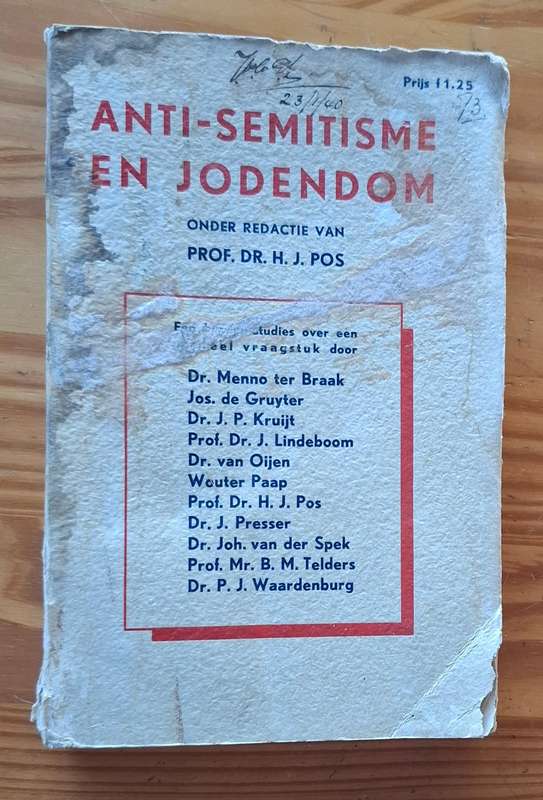 23/1/40
Prijs f 1.25
ANTI-SEMITISME
EN JODENDOM
ONDER REDACTIE VAN
PROF. DR. H. J. POS
studies over een
vraagstuk door
Dr. Menno ter Braak
Jos. de Gruyter
Dr. J. P. Kruijt
Prof. Dr. J. Lindeboom
Dr. van Oijen
Wouter Paap
Prof. Dr. H. J. Pos
Dr. J. Presser
Dr. Joh. van der Spek
Prof. Mr. B. M. Telders
Dr. P. J. Waardenburg